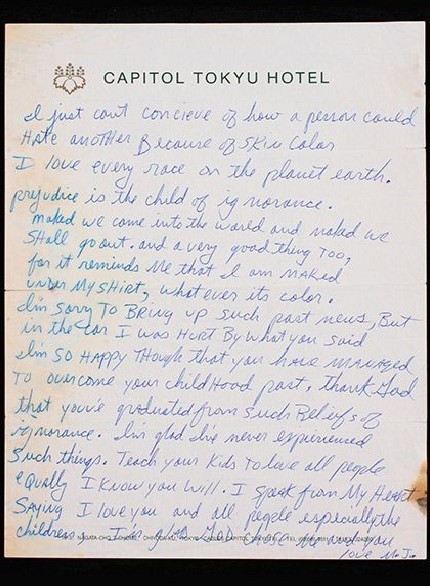 CAPITOL TOKYU HOTEL
I just cant concieve of how a person could
Hate another Because of Skin Color
I love every race on the planet earth.
prejudice is the child of ignorance.
naked we come into the world and naked we
SHall go out. and a very good thing TOO,
for it reminds Me that I am NAKED
under MY SHirt, whatever its color.
I'm sorry TO BRing up such past news, But
in the car I was HURT By what you said
I'm SO HAPPY THough that you HAVE MANAGED
TO overcome your childHood past. thank God
that you've graduated from such Beliefs of
ignorance. I'm glad I've never experienced
Such things. Teach your Kids To love all people
equally I know you will. I speak from My Heart
Saying I love you and all people especially the
children I'm glad God chose me and you
love M.J.